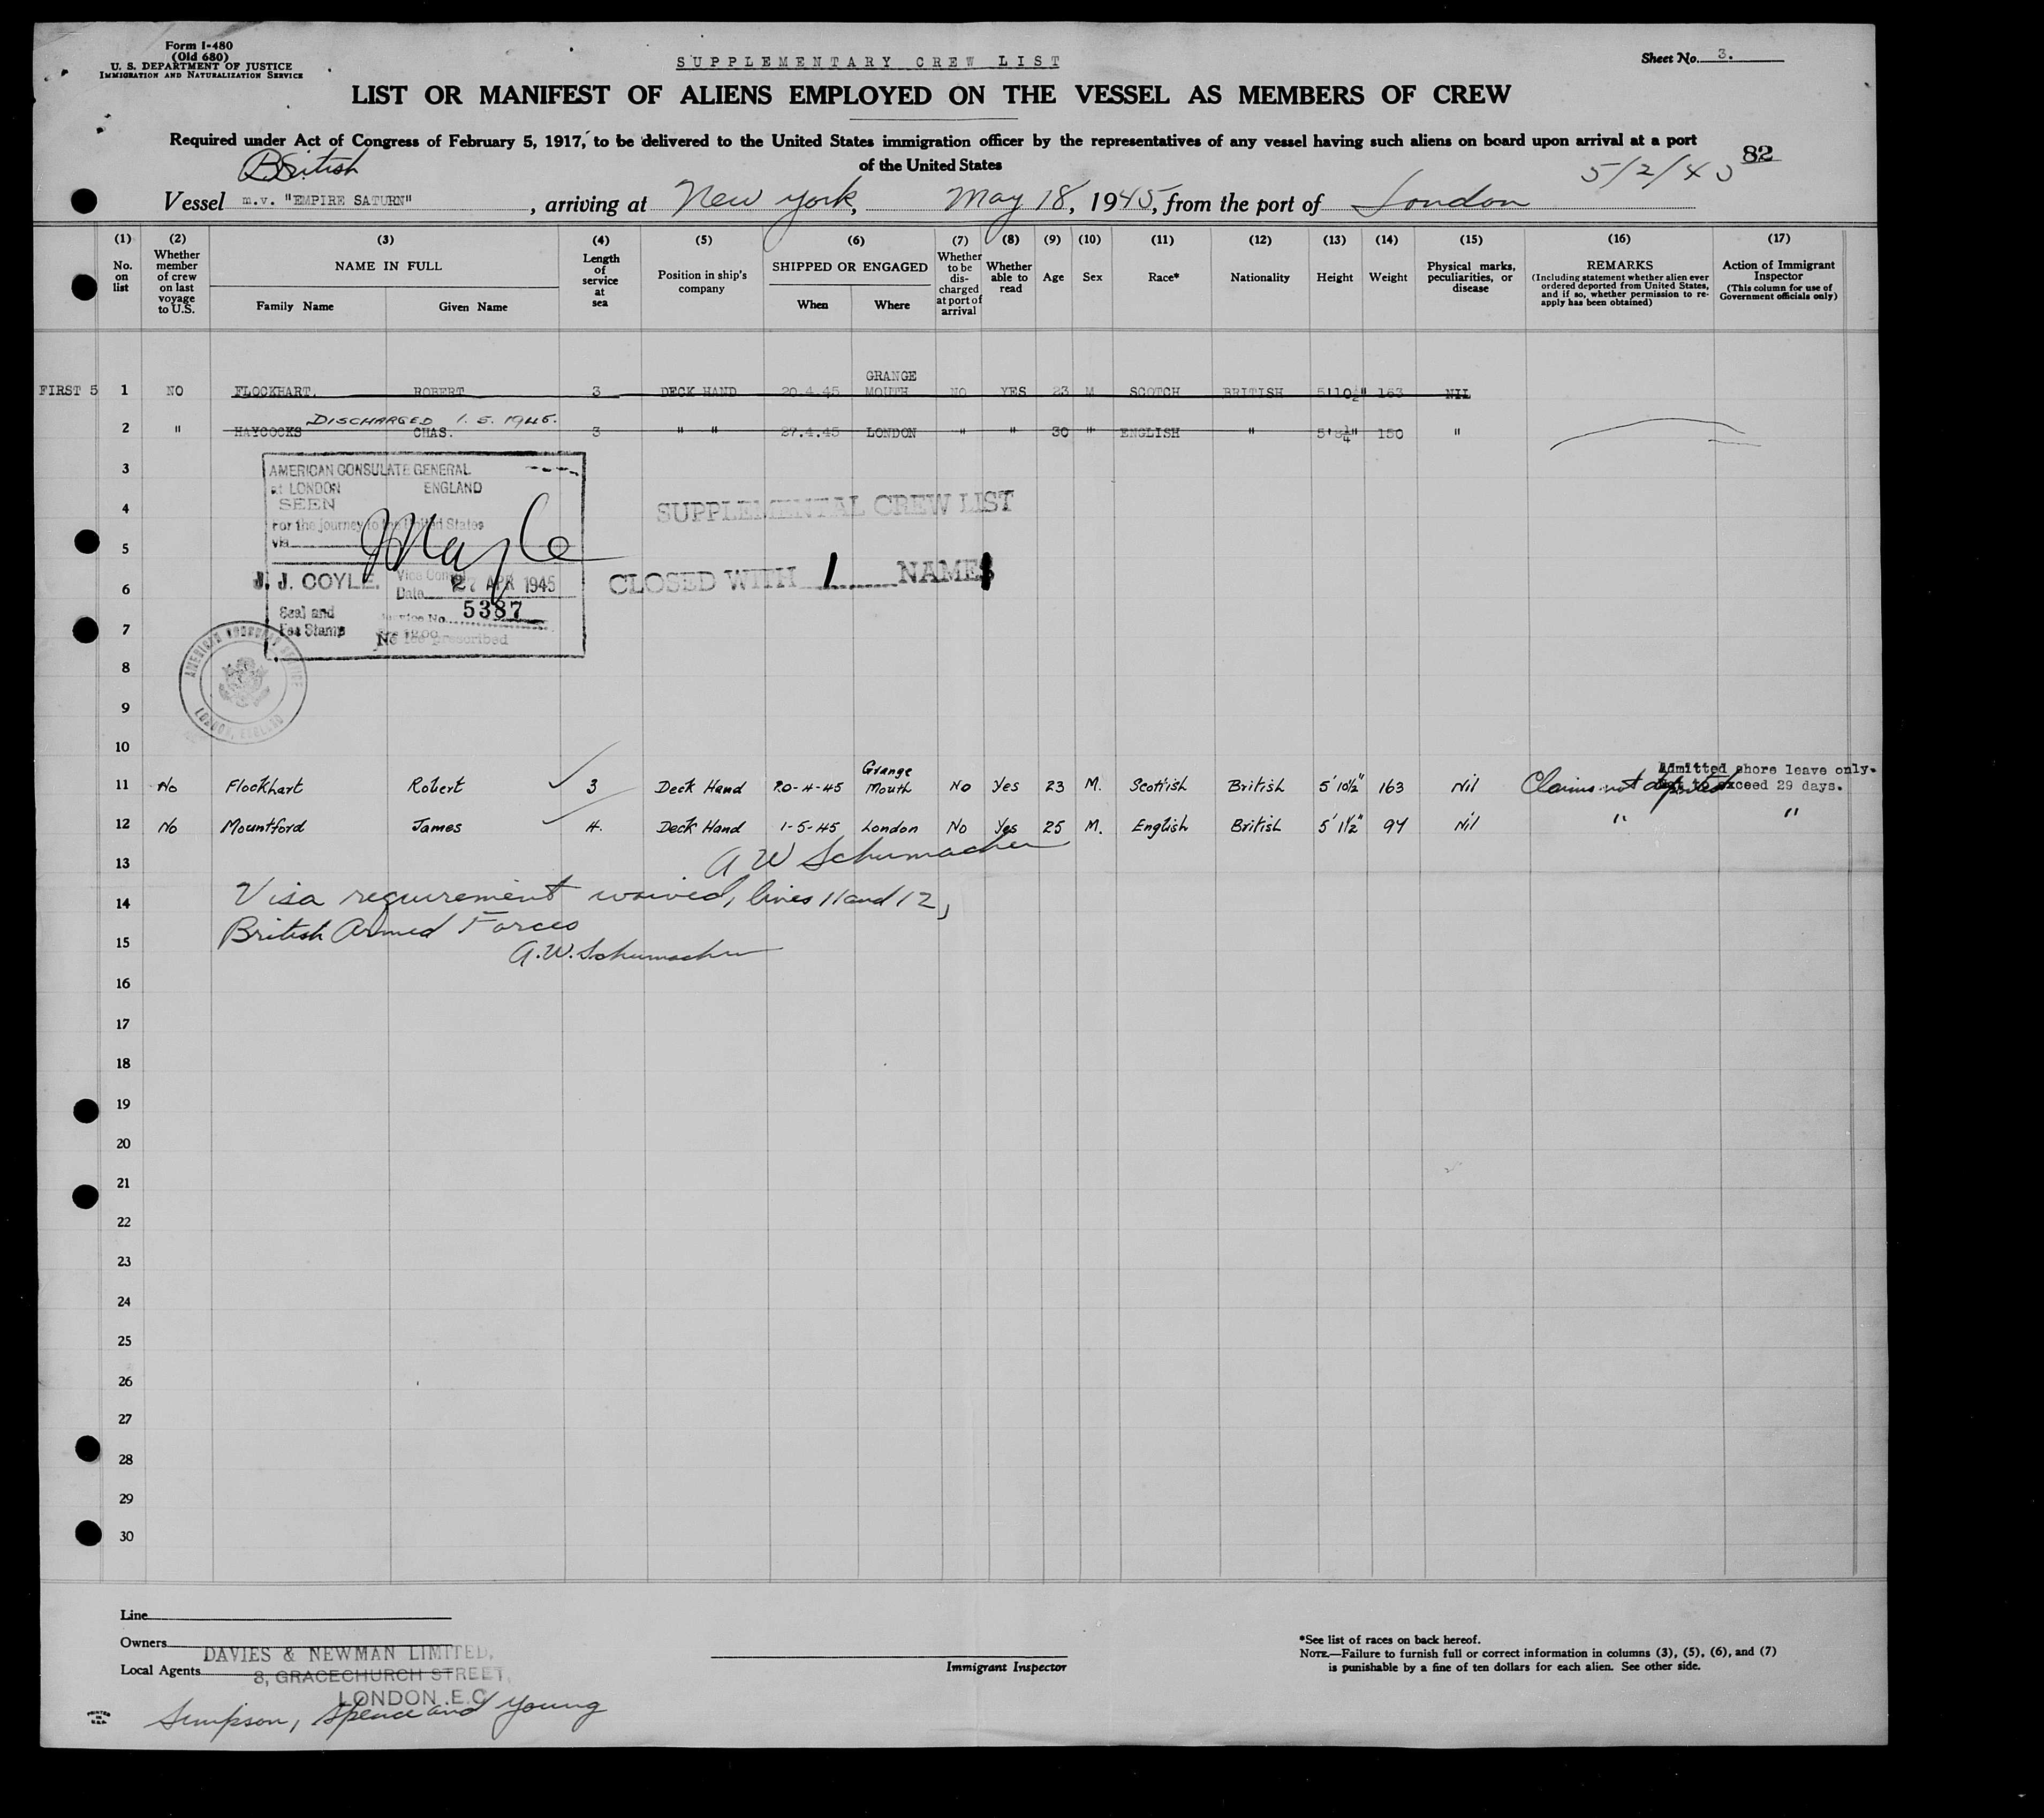 Form I-480
(Old 680)
U. S. DEPARTMENT OF JUSTICE
IMMIGRATION AND NATURALIZATION SERVICE
SUPPLEMENTARY CREW LIST
Sheet No. 3.
LIST OR MANIFEST OF ALIENS EMPLOYED ON THE VESSEL AS MEMBERS OF CREW
Required under Act of Congress of February 5, 1917, to be delivered to the United States immigration officer by the representatives of any vessel having such aliens on board upon arrival at a port
of the United States
82
British
5/2/45
Vessel m.v. "EMPIRE SATURN", arriving at New York, May 18, 1945, from the port of London
(1) (2) (3) (4) (5) (6) (7) (8) (9) (10) (11) (12) (13) (14) (15) (16) (17)
No. on list
Whether member of crew on last voyage to U.S.
NAME IN FULL
Family Name Given Name
Length of service at sea
Position in ship's company
SHIPPED OR ENGAGED
When Where
Whether to be discharged at port of arrival
Whether able to read
Age
Sex
Race*
Nationality
Height
Weight
Physical marks, peculiarities, or disease
REMARKS
(Including statement whether alien ever ordered deported from United States, and if so, whether permission to re-apply has been obtained)
Action of Immigrant Inspector
(This column for use of Government officials only)
FIRST 5 1 NO FLOCKHART. ROBERT 3 DECK HAND 20.4.45 GRANGE MOUTH NO YES 23 M SCOTCH BRITISH 5'10½" 163 NIL
DISCHARGED 1.5.1945.
2 " HAYCOCKS CHAS. 3 " " 27.4.45 LONDON " " 30 " ENGLISH " 150 "
3
AMERICAN CONSULATE GENERAL
at LONDON ENGLAND
SEEN
For the journey to the United States
via
4
SUPPLEMENTAL CREW LIST
5
J. J. COYLE. Vice Consul
Date 27 APR 1945
6
CLOSED WITH 1 NAME
Seal and
Fee Stamp
Service No. 5387
No fee prescribed
7
AMERICAN CONSULAR SERVICE
LONDON, ENGLAND
8
9
10
11 No Flockhart Robert 3 Deck Hand 20-4-45 Grange Mouth No Yes 23 M. Scottish British 5' 10½" 163 Nil Claims not deported
Admitted shore leave only.
Not to exceed 29 days.
12 No Mountford James 4. Deck Hand 1-5-45 London No Yes 25 M. English British 5' 1½" 94 Nil " "
A W Schumacher
13
14 Visa requirement waived, lines 11 and 12,
British Armed Forces
15 A.W. Schumacher
16
17
18
19
20
21
22
23
24
25
26
27
28
29
30
Line
Owners
DAVIES & NEWMAN LIMITED,
Local Agents
8, GRACECHURCH STREET,
LONDON E.C
Simpson, Spence and Young
PRINTED IN U.S.A.
Immigrant Inspector
*See list of races on back hereof.
NOTE.—Failure to furnish full or correct information in columns (3), (5), (6), and (7)
is punishable by a fine of ten dollars for each alien. See other side.